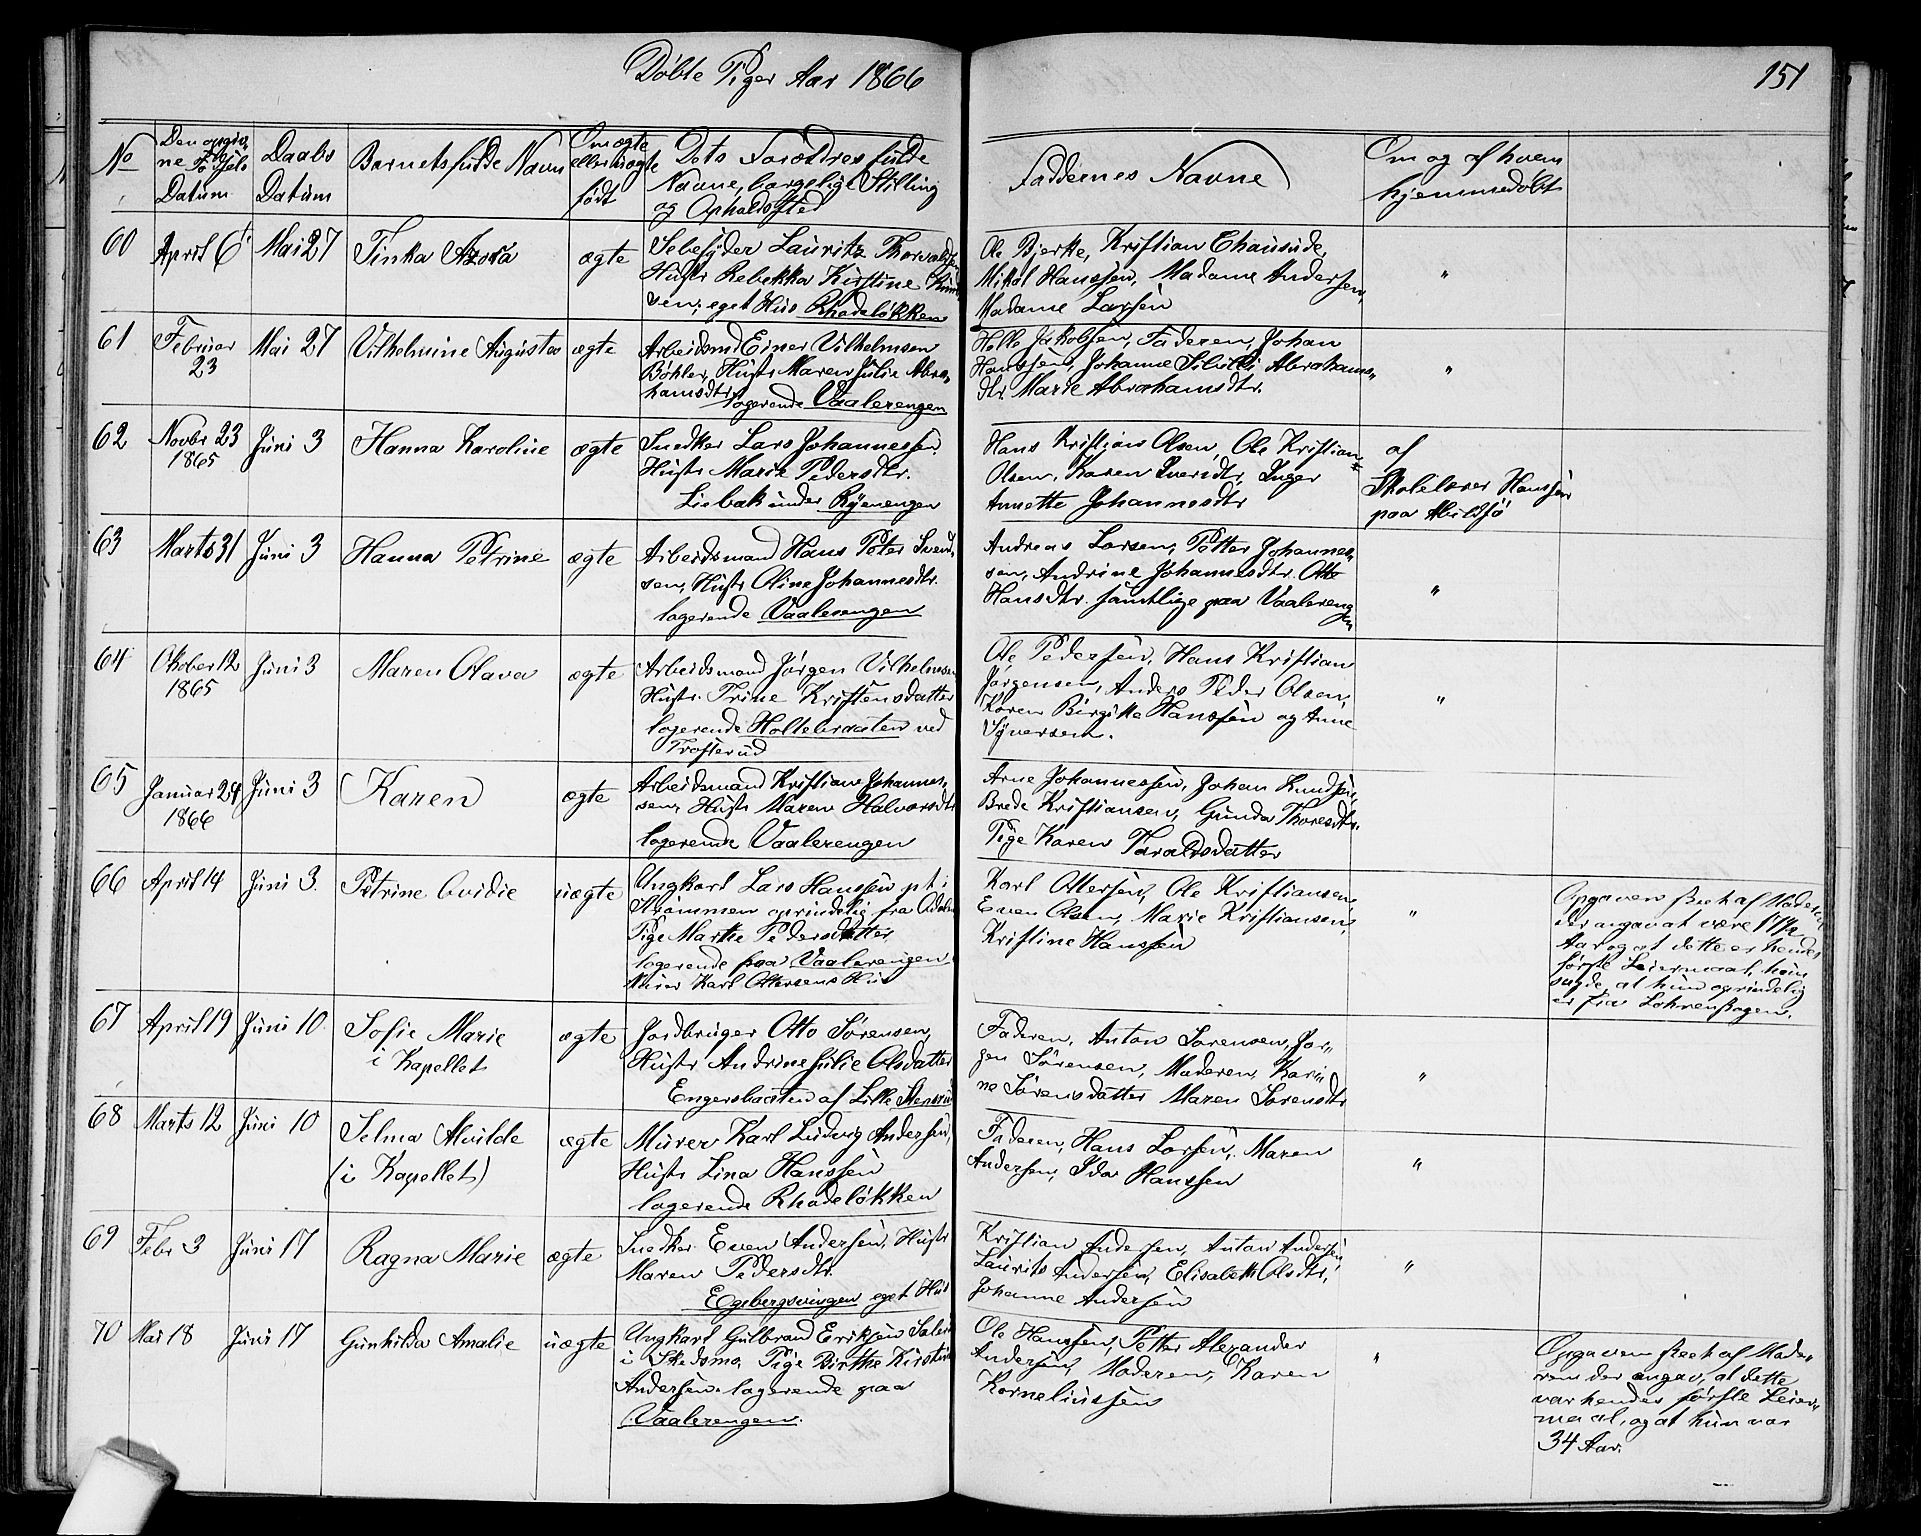 Döbte Piger Aar 1866
151
No
Den opgiv-
ne Födsels
Datum
Daabs
Datum
Barnets fulde Navn
Om ægte
eller uægte
födt
Dets Forældres fulde
Navne, borgelige Stilling
og Opholdssted
Faddernes Navne
Om og af hvem
hjemmedöbt
60 April 6 Mai 27 Tinka ægte
Lauritz Thorvald
Hustr Rebekka Kirstine
sen; eget Hus Rhodelökken
Ole Bjerke, Kristian
Hanssen, Madame Andersen,
Madame Larsen
"
61 Februar
23
Mai 27 Vilhelmine Augusta ægte
Arbeidsmd Einer Vilhelmsen
Böhler, Hustr Maren Julie Abra-
hamsdtr
logerende Vaalerengen
Jakobsen, Faderen, Johan
Hanssen, Johanne Abrahams-
dtr Marte Abrahamsdtr.
"
62 Novbr 23
1865
Juni 3 Hanna Karoline ægte
Snedker Lars Johannessen
Hustr Marte Pedersdtr.
under Ryenengen
Hans Kristian Olsen, Ole Kristian
Olsen, Karen Inger
Annette Johannesdtr
af
Skolelærer Hanssen
paa Abildsö
63 Marts 31 Juni 3 Hanna Petrine ægte
Arbeidsmand Hans Peter Svend-
sen, Hustr Oline Johannesdtr.
logerende Vaalerengen
Andreas Larsen, Petter Johannes-
sen, Andrine Johannesdtr.
Hansdtr. samtlige paa Vaalerengen
"
64 Oktober 12
1865
Juni 3 Maren Olava ægte
Arbeidsmand Jörgen Vilhelmsen
Hustr. Trine Kristensdatter
logerende Holtebraaten ved
Trosterud
Ole Pedersen, Hans Kristian
Jörgensen, Anders Peder Olsen,
Karen Birgitte Hanssen og Anne
Syversen.
"
65 Januar 24
1866
Juni 3 Karen ægte
Arbeidsmand Kristian Johannes-
sen, Hustr Maren Halvorsdtr
logerende Vaalerengen
Arne Johannessen, Johan Knudsen,
Brede Kristiansen, Gunda Thoresdtr.
Pige Karen Taraldsdatter
66 April 14 Juni 3. Petrine Ovidie uægte
Ungkarl Lars Hanssen pt i
Strömmen oprindelig fra Odalen
Pige Marthe Pedersdatter
logerende paa Vaalerengen
Murer Karl Ottersens Hus
Karl Ottersen, Ole Kristiansen,
Even Olsen, Marie Kristiansen,
Kristine Hanssen
"
Opgaven skeet af Moderen
der angav at være
Aar og at dette er hendes
förste Leiermaal, hun
sagde at hun oprindelig
er fra
67 April 19 Juni 10 Sofie Marie
i Kapellet
ægte
Jordbruger Otto Sörensen,
Hustr Andrine Julie Olsdatter
Engersbraaten af Lille Stensrud
Faderen, Anton Sörensen, Jör-
gen Sörensen, Moderen, Kari-
ne Sörensdatter Maren Sörensdtr
"
68 Marts 12 Juni 10 Selma Alvilde
(i Kapellet)
ægte
Murer Karl Ludvig Andersen,
Hustr Lina Hanssen
logerende Rhodelökken
Faderen, Hans Larsen, Maren
Andersen, Ida Hanssen
"
69 Febr 3 Juni 17 Ragna Marie ægte
Snedker Even Andersen, Hustr
Maren Pedersdtr.
Egebergsvingen eget Hus
Kristian Andersen, Anton Andersen,
Laurits Andersen, Elisabeth Olsdtr,
Johanne Andersen
"
70 Mai 18 Juni 17 Gunhilda Amalie uægte
Ungkarl Gulbrand Eriksen
i Skedsmo, Pige Birthe Kirstine
Andersen logerende paa
Vaalerengen.
Ole Hanssen, Petter Alexander
Andersen, Moderen, Karen
Korneliussen
"
Opgaven skeet af Mode-
ren der angav, at dette
var hendes förste Leier-
maal, og at hun var
34 Aar.